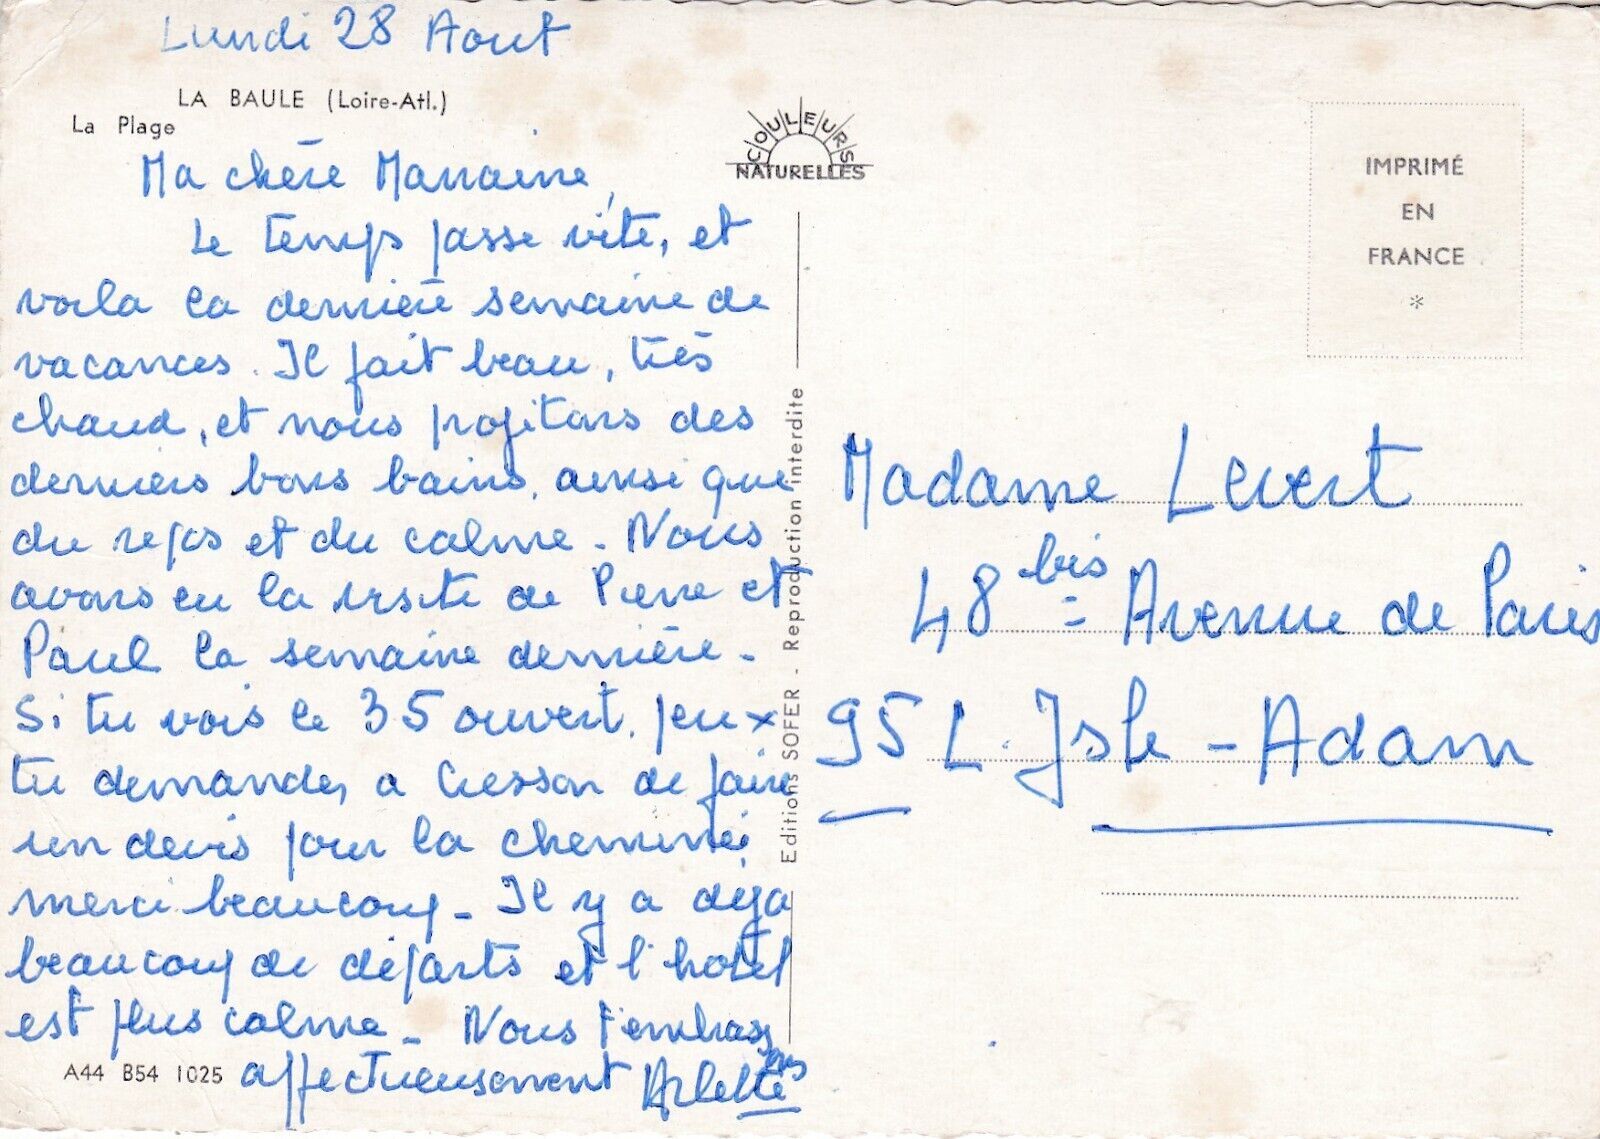 Lundi 28 Aout
LA BAULE (Loire-Atl.)
La Plage
Ma chère Marraine,
Le temps passe vite, et
voila la dernière semaine de
vacances. Il fait beau, très
chaud, et nous profitons des
derniers bons bains, ainsi que
du repos et du calme - Nous
avons eu la visite de Pierre et
Paul la semaine dernière -
Si tu vois le 35 ouvert, peux
tu demander a Cresson de faire
un devis pour la cheminée,
merci beaucoup - Il y a déja
beaucoup de départs et l'hotel
est plus calme - Nous t'embrassons
affectueusement Arlette
A44 B54 1025
COULEURS
NATURELLES
Editions SOFER - Reproduction interdite
IMPRIMÉ
EN
FRANCE
*
Madame Levert
48 bis Avenue de Paris
95 L'Isle-Adam